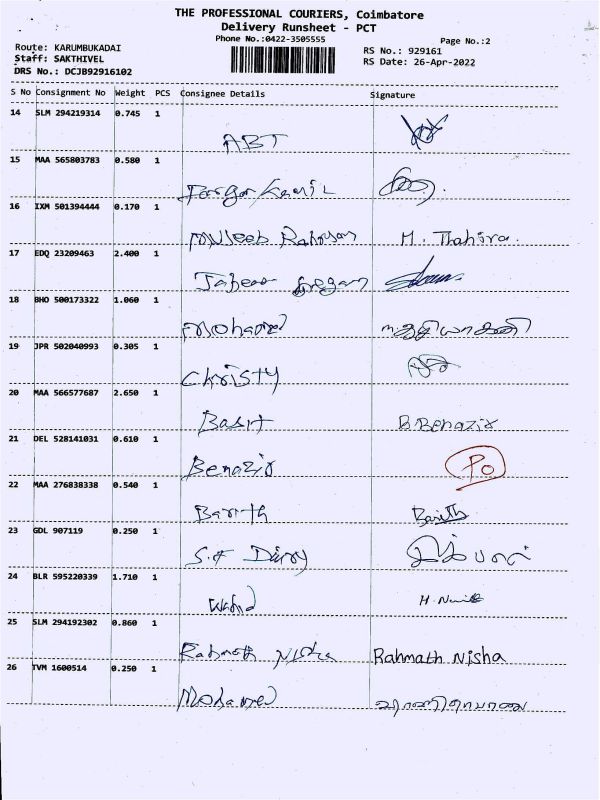 THE PROFESSIONAL COURIERS, Coimbatore
Delivery Runsheet - PCT
Phone No.:0422-3505555
Page No.:2
Route: KARUMBUKADAI
RS No.: 929161
Staff: SAKTHIVEL
RS Date: 26-Apr-2022
DRS No.: DCJB92916102
S No Consignment No Weight PCS Consignee Details Signature
14 SLM 294219314 0.745 1
ABT
15 MAA 565803783 0.580 1
16 IXM 501394444 0.170 1
Mujeeb Rahman M. Thahira.
17 EDQ 23209463 2.400 1
18 BHO 500173322 1.060 1
Mohamed
19 JPR 502040993 0.305 1
Christy
20 MAA 566577687 2.650 1
Basit B.Benazir
21 DEL 528141031 0.610 1
Benazir PO
22 MAA 276838338 0.540 1
Barith Barith
23 GDL 907119 0.250 1
S.F
24 BLR 595220339 1.710 1
Wahid
25 SLM 294192302 0.860 1
Rahmath Nisha Rahmath Nisha
26 TVM 1600514 0.250 1
Mohamed